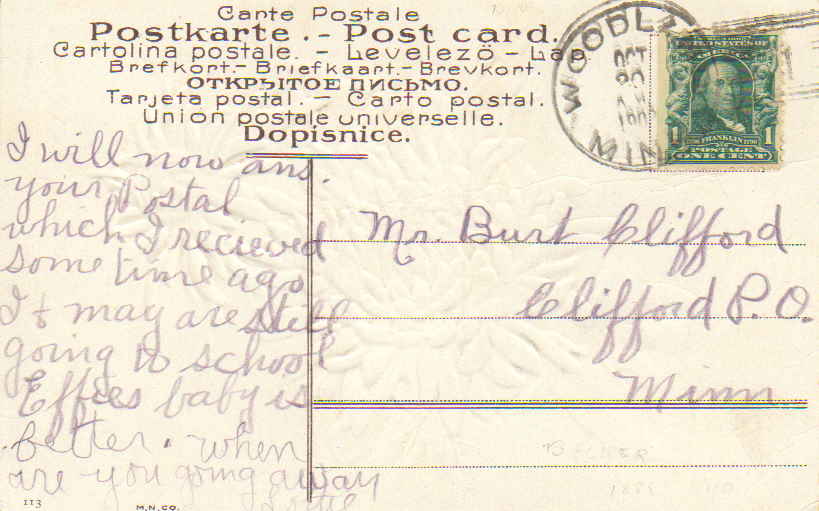 Carte Postale
Postkarte .- Post card.
Cartolina postale. - Levelezö - Lap
Brefkort.- Briefkaart.- Brevkort.
ОТКРЫТОЕ ПИСЬМО.
Tarjeta postal. - Carto postal.
Union postale universelle.
Dopisnice.
WOODL
OCT
MIN
UNITED STATES OF
AMERICA
1 FRANKLIN 1
POSTAGE
ONE CENT
I will now ans.
your Postal
which I recieved
some time ago
I & may are still
going to school
Effies baby is
better. when
are you going away
Lottie
Mr. Burt Clifford
Clifford P.O.
Minn
BECKER
113
M.N.CO.